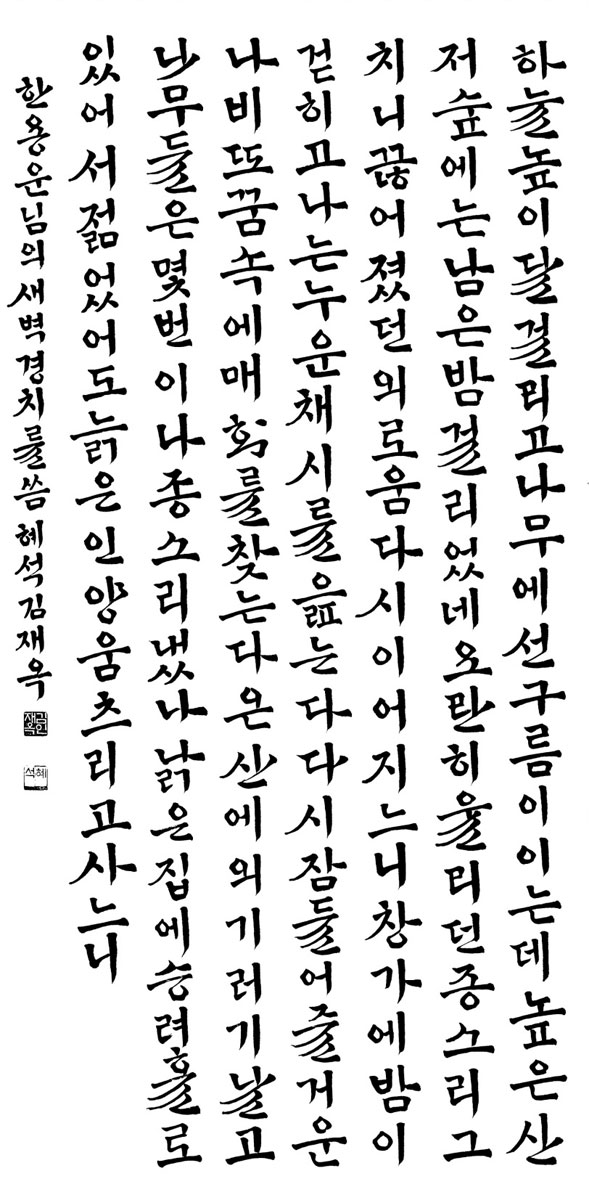 하늘높이달걸리고나무에선구름이이는데높은산
저숲에는남은밤걸리었네요란히울리던종소리그
치니끊어졌던외로움다시이어지느니창가에밤이
걷히고나는누운채시를읊는다다시잠들어즐거운
나비또꿈속에매화를찾는다온산에외기러기날고
나무들은몇번이나종소리냈나낡은집에승려홀로
있어서젊었어도늙은인양움츠리고사느니
한용운님의새벽경치를씀혜석김재옥
김인
재옥
혜석